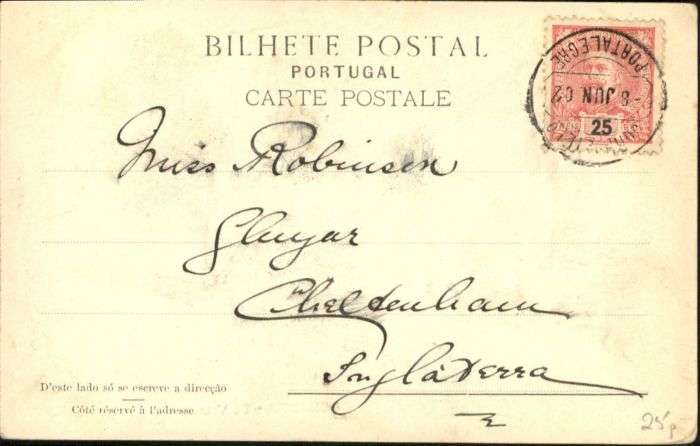 BILHETE POSTAL
PORTUGAL
CARTE POSTALE
25
PORTALEGRE
-8 JUN 02
Miss Robinson
Cheltenham
Inglaterra
D'este lado só se escreve a direcção
Côté réservé à l'adresse
25p